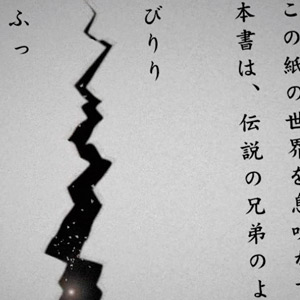 この紙の世界を息吹か
本書は、伝説の兄弟のよ
びりり
ふっ